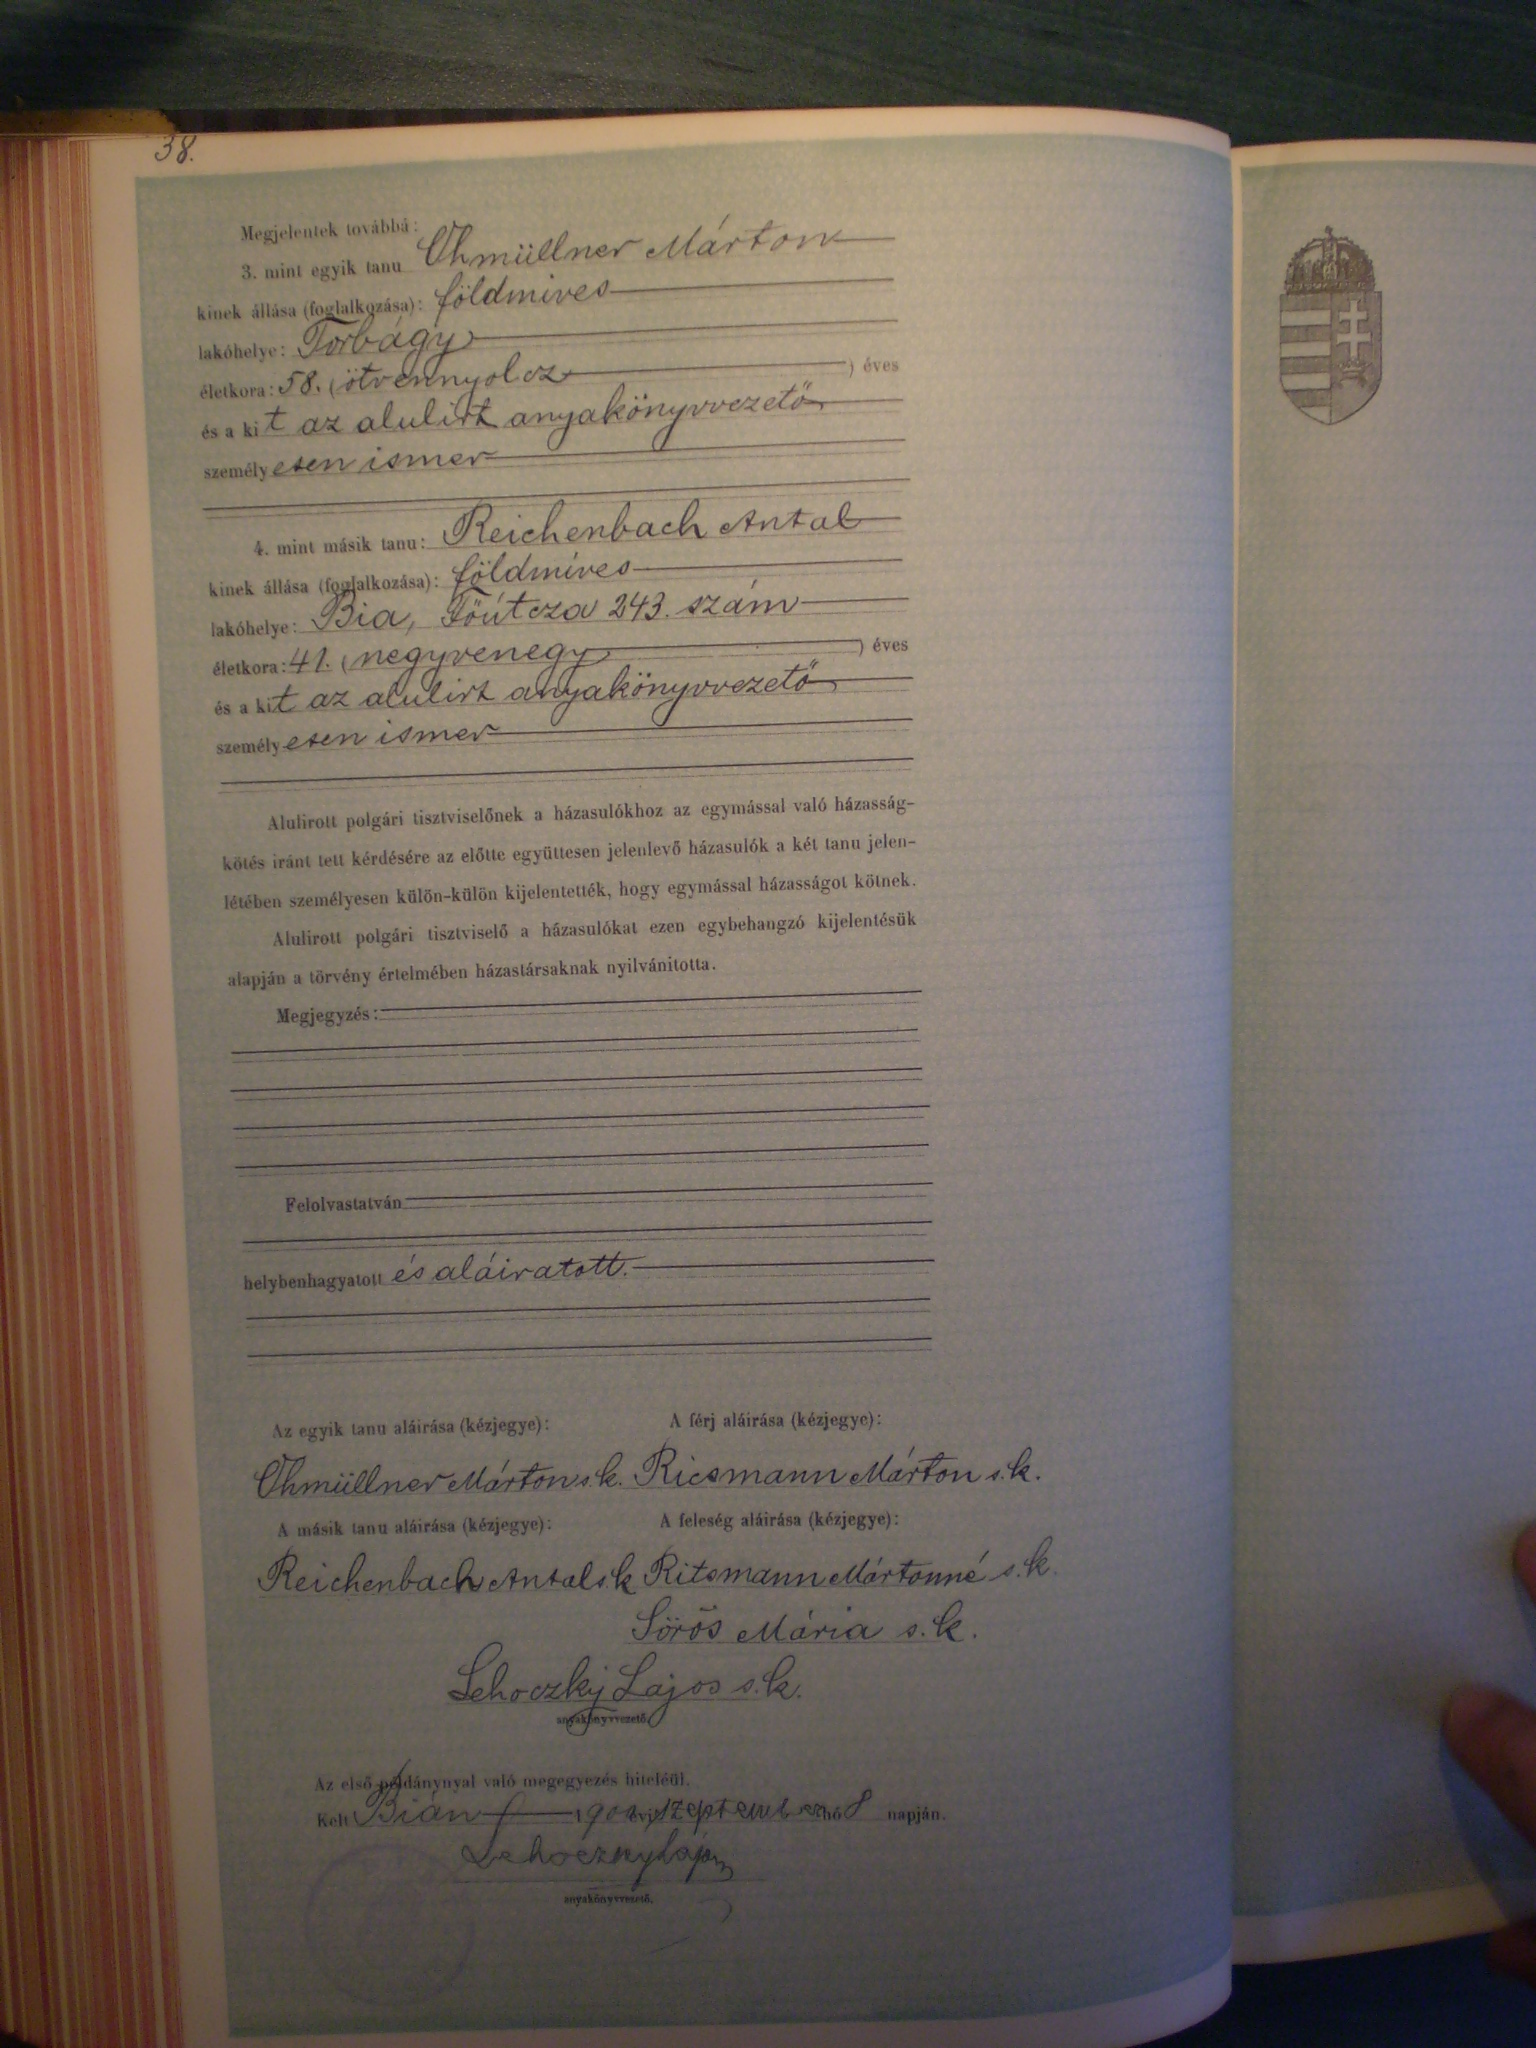 38.
Megjelentek továbbá:
3. mint egyik tanu Ohmüllner Márton
kinek állása (foglalkozása): földmives
lakóhelye: Torbágy
életkora: 58. (ötvennyolcz) éves
és a kit az alulirt anyakönyvvezető
személyesen ismer
4. mint másik tanu: Reichenbach Antal
kinek állása (foglalkozása): földmíves
lakóhelye: Bia, Főútcza 243. szám
életkora: 41. (negyvenegy) éves
és a kit az alulirt anyakönyvvezető
személyesen ismer
Alulirott polgári tisztviselőnek a házasulókhoz az egymással való házasság-
kötés iránt tett kérdésére az előtte együttesen jelenlevő házasulók a két tanu jelen-
létében személyesen külön-külön kijelentették, hogy egymással házasságot kötnek.
Alulirott polgári tisztviselő a házasulókat ezen egybehangzó kijelentésük
alapján a törvény értelmében házastársaknak nyilvánitotta.
Megjegyzés:
Felolvastatván
helybenhagyatott és aláiratott.
Az egyik tanu aláirása (kézjegye): A férj aláirása (kézjegye):
Ohmüllner Márton s.k. Ricsmann Márton s.k.
A másik tanu aláirása (kézjegye): A feleség aláirása (kézjegye):
Reichenbach Antal s.k Ritsmann Mártonné s.k.
Sörös Mária s.k.
Lehoczky Lajos s.k.
anyakönyvvezető
Az első példánynyal való megegyezés hiteléül.
Kelt Bián szeptember hó 8 napján.
Lehoczky Lajos
anyakönyvvezető.